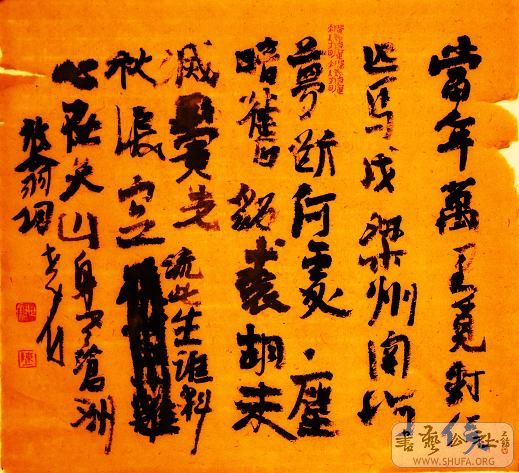 當年萬里覓封侯
匹馬戍梁州關河
夢斷何處塵
暗舊貂裘胡未
滅鬢先
秋淚空
流此生誰料
心在天山身老滄洲
放翁詞
書藝公社
WWW.SHUFA.ORG